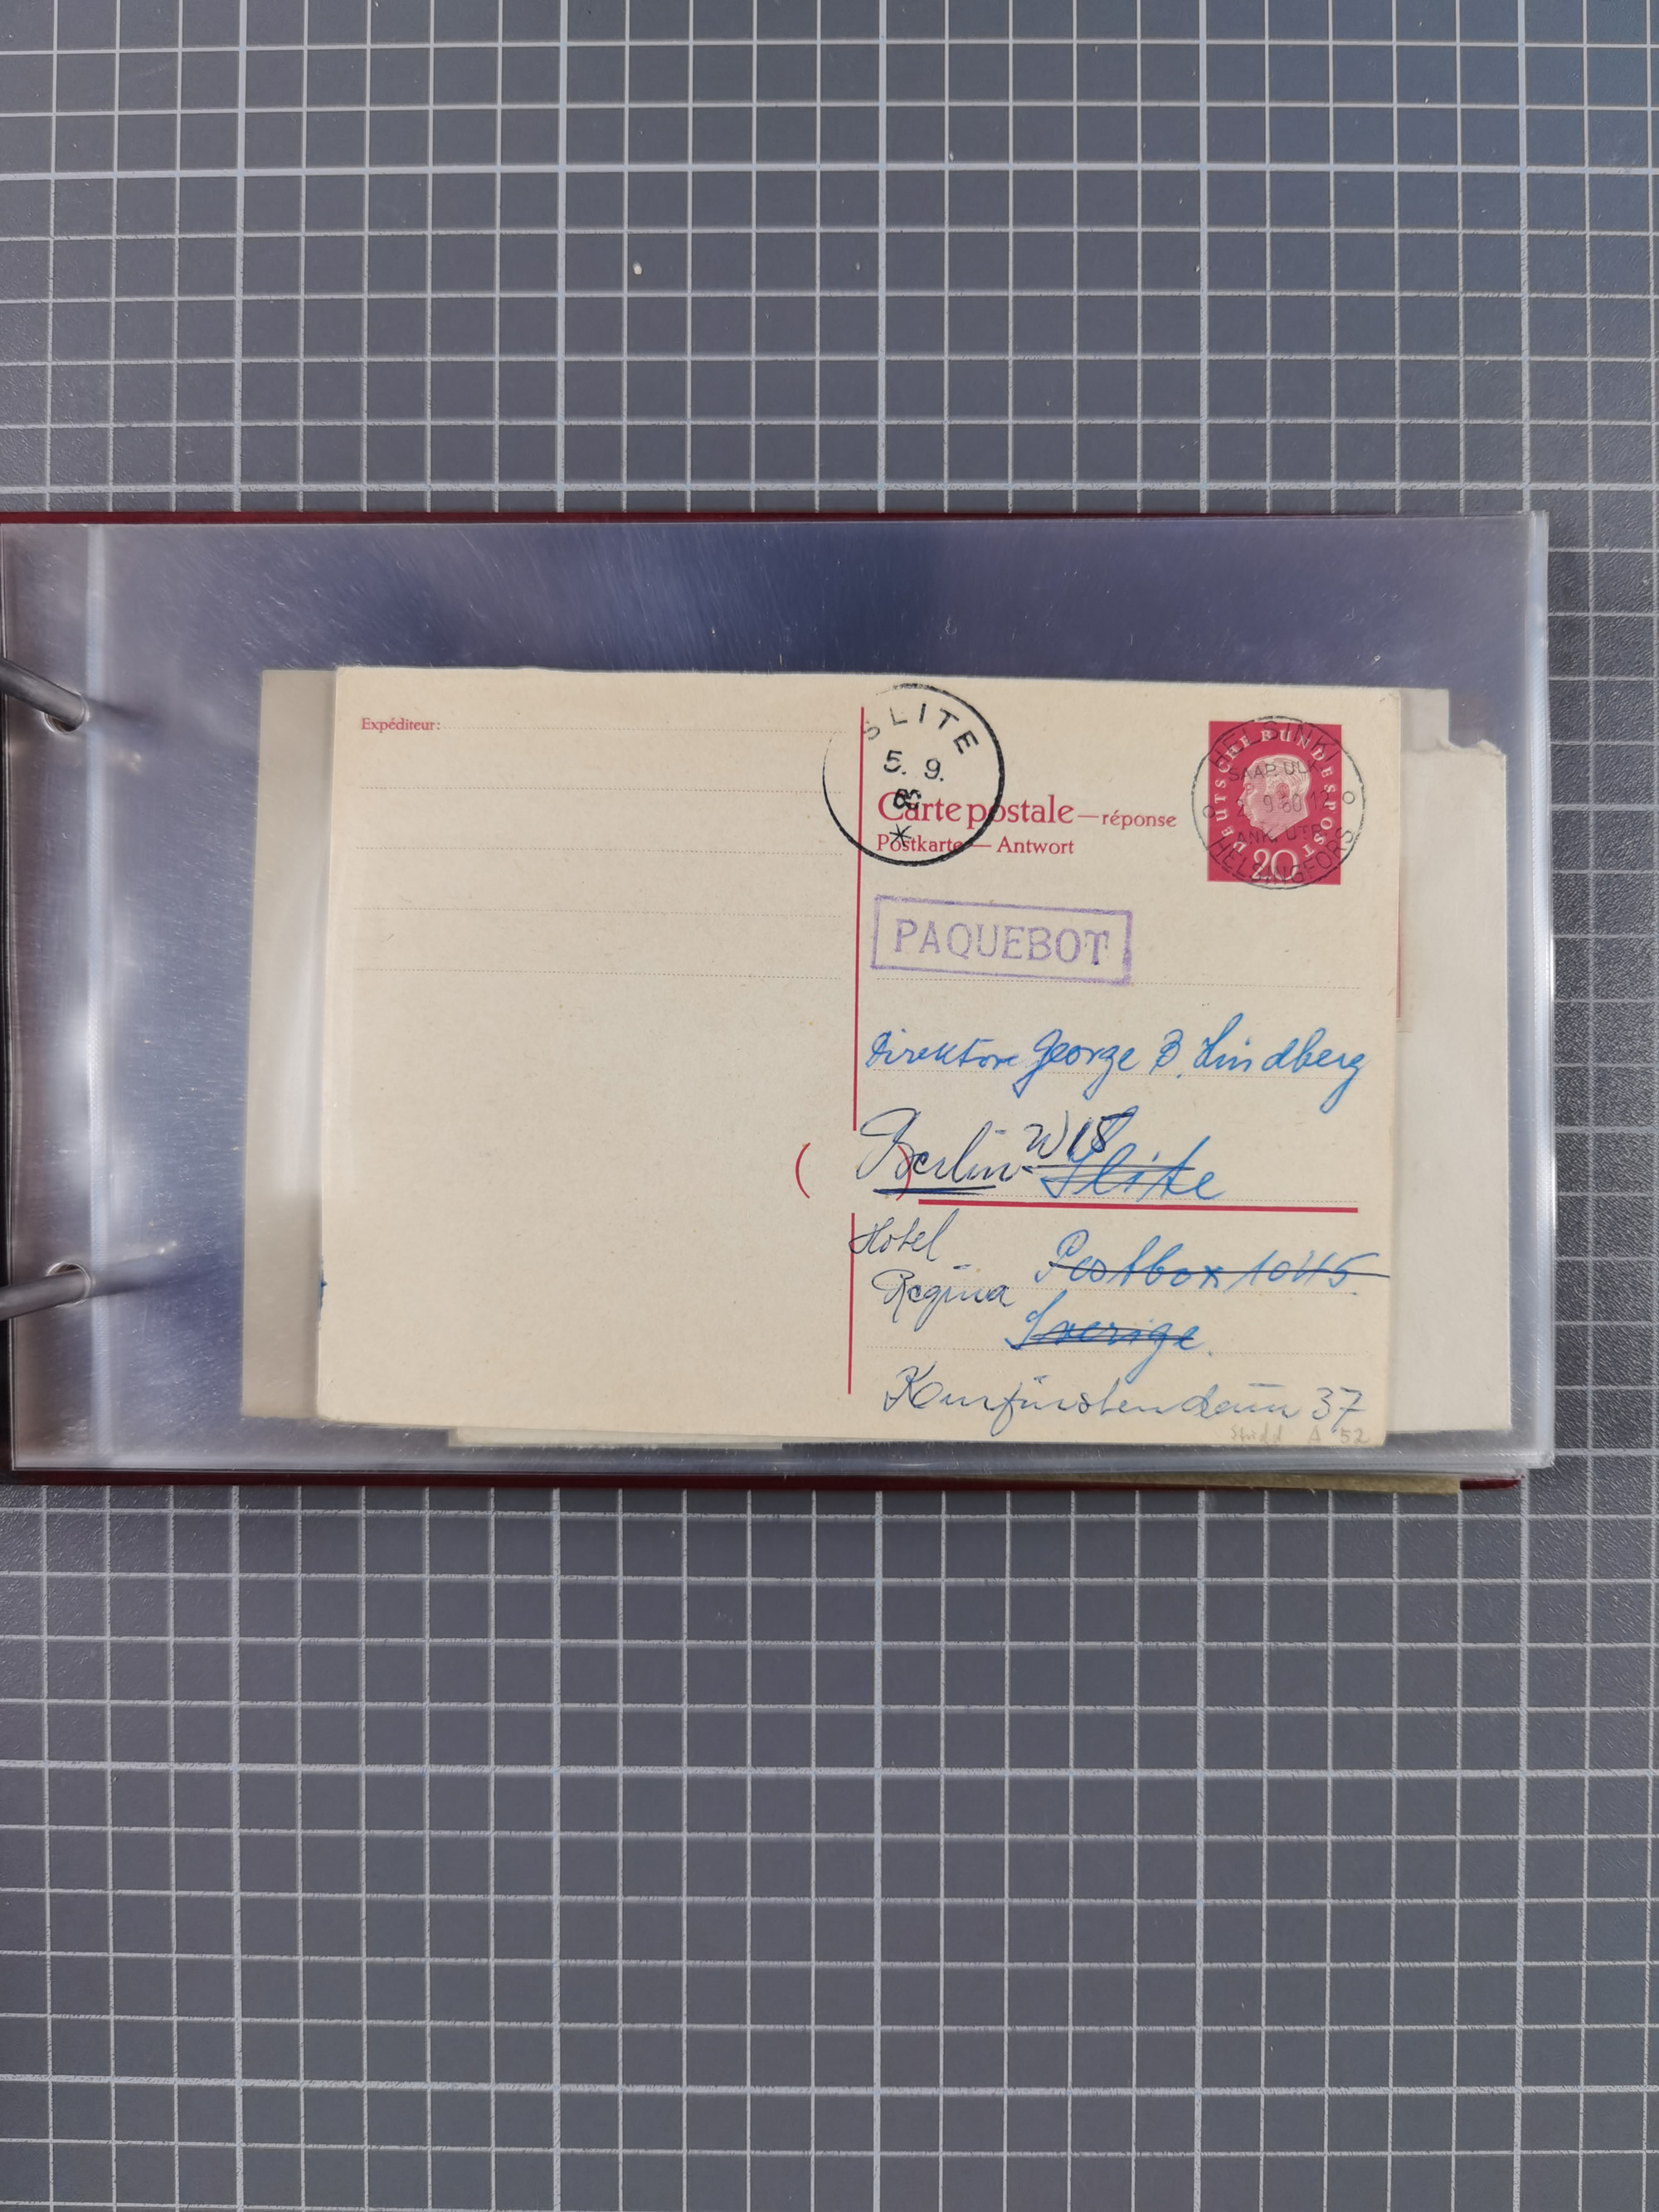 Expéditeur:
SLITE
5. 9.
60
Carte postale — réponse
Postkarte — Antwort
DEUTSCHE BUNDESPOST
20
HELSINKI
SAAP. ULK.
2. 9. 60 12
ANK. UTR.
HELSINGFORS
PAQUEBOT
Direktör George B. Lindberg
Berlin W 15 Slite
Hotel
Regina
Postbox 1045
Sverige.
Kurfürstendam 37
A 52